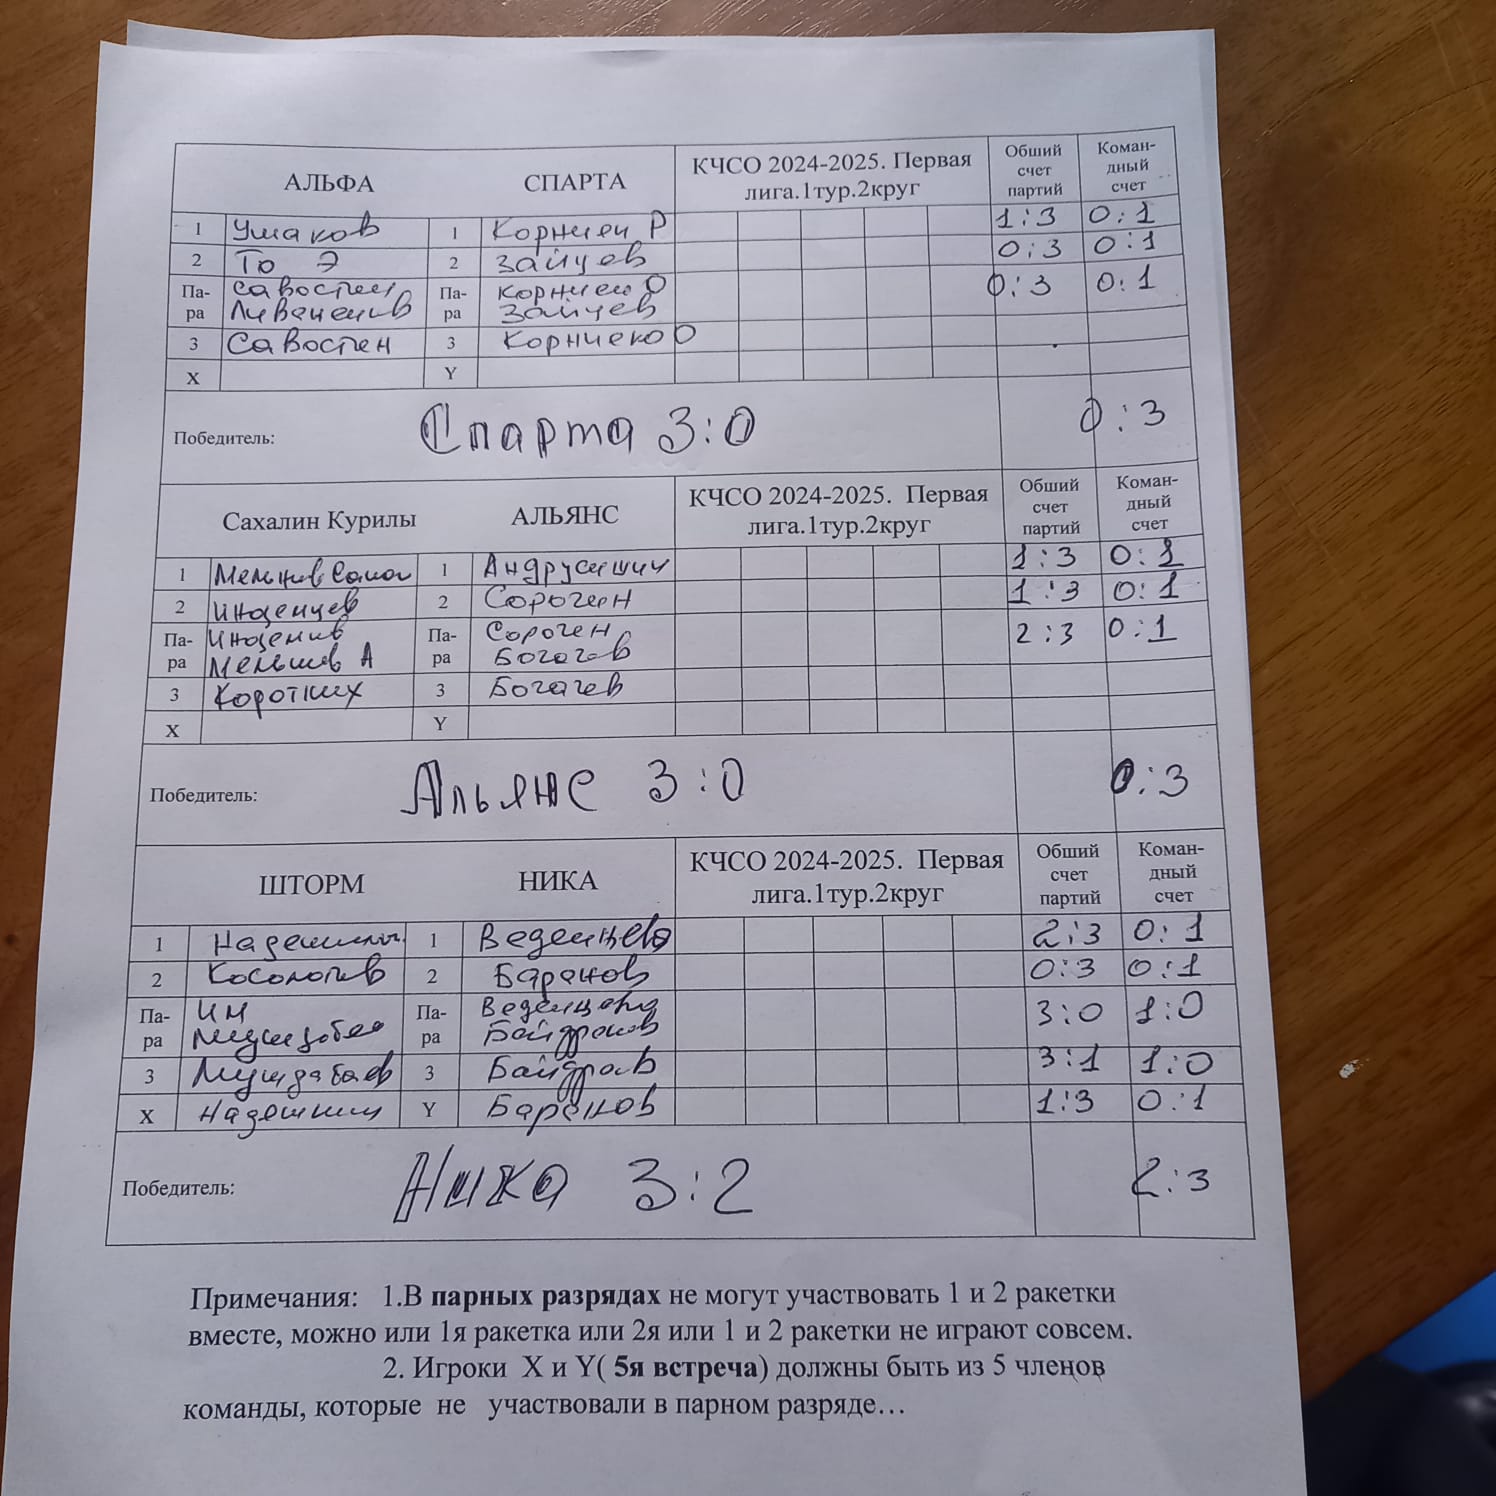 АЛЬФА СПАРТА КЧСО 2024-2025. Первая лига.1тур.2круг Обший счет партий Коман-дный счет
1 Ушаков 1 Корниен Р 1:3 0:1
2 То Э 2 Зайцев 0:3 0:1
Па-ра Савостин Па-ра Корниен О 0:3 0:1
Зайцев
3 Савостен 3 Корниеко О
X Y
Победитель: Спарта 3:0 0:3
Сахалин Курилы АЛЬЯНС КЧСО 2024-2025. Первая лига.1тур.2круг Обший счет партий Коман-дный счет
1 1 Андрусишин 1:3 0:1
2 Инденцев 2 Сорочен 1:3 0:1
Па-ра Па-ра Сорочен 2:3 0:1
А Богачев
3 Коротких 3 Богачев
X Y
Победитель: Альянс 3:0 0:3
ШТОРМ НИКА КЧСО 2024-2025. Первая лига.1тур.2круг Обший счет партий Коман-дный счет
1 1 Веденцева 2:3 0:1
2 2 Баранов 0:3 0:1
Па-ра ИМ Па-ра Веденцева 3:0 1:0
3 Мушдабаев 3 3:1 1:0
X Надешкин Y Баранов 1:3 0:1
Победитель: Ника 3:2 2:3
Примечания: 1.В парных разрядах не могут участвовать 1 и 2 ракетки
вместе, можно или 1я ракетка или 2я или 1 и 2 ракетки не играют совсем.
2. Игроки X и Y( 5я встреча) должны быть из 5 членов
команды, которые не участвовали в парном разряде…